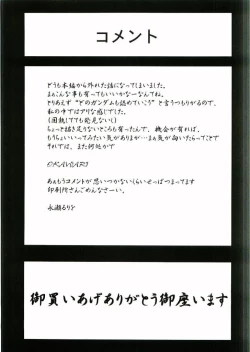 コメント
どうも本編から外れた話になってしまいました。
まぁこんな事も有ってもいいかなーなんてね。
とりあえず"どのガンダムも認めていこう"と言うつもりがるので、
私の中ではアリな感じでした。
ちょっと描き足りないところも有ったんで、機会が有れば、
もうちょいいってみたい気がありますが…まぁ気が向いたらってことで
それでは、また何処かで
あぁもうコメントが思いつかないくらいせっぱつまってます
印刷所さんごめんなさーい。
永瀬るりを
御買いあげありがとう御座います